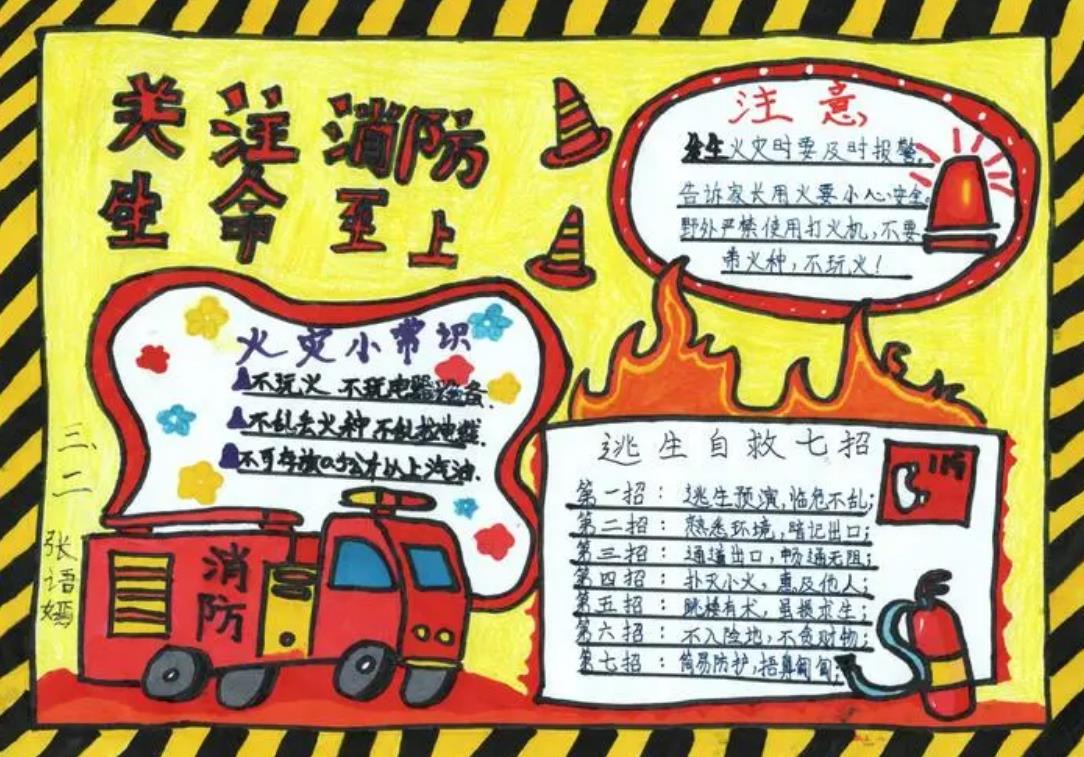 关注消防
生命至上
注意
发生火灾时要及时报警,
告诉家长用火要小心安全。
野外严禁使用打火机,不要
带火种,不玩火!
火灾小常识
不玩火 不玩电器设备.
不乱丢火种 不乱拉电线.
不可存放0.5公斤以上汽油.
三、二
张语嫣
消防
逃生自救七招
119
第一招:逃生预演,临危不乱;
第二招:熟悉环境,暗记出口;
第三招:通道出口,畅通无阻;
第四招:扑灭小火,惠及他人;
第五招:跳楼有术,虽损求生;
第六招:不入险地,不贪财物;
第七招:简易防护,捂鼻匍匐;